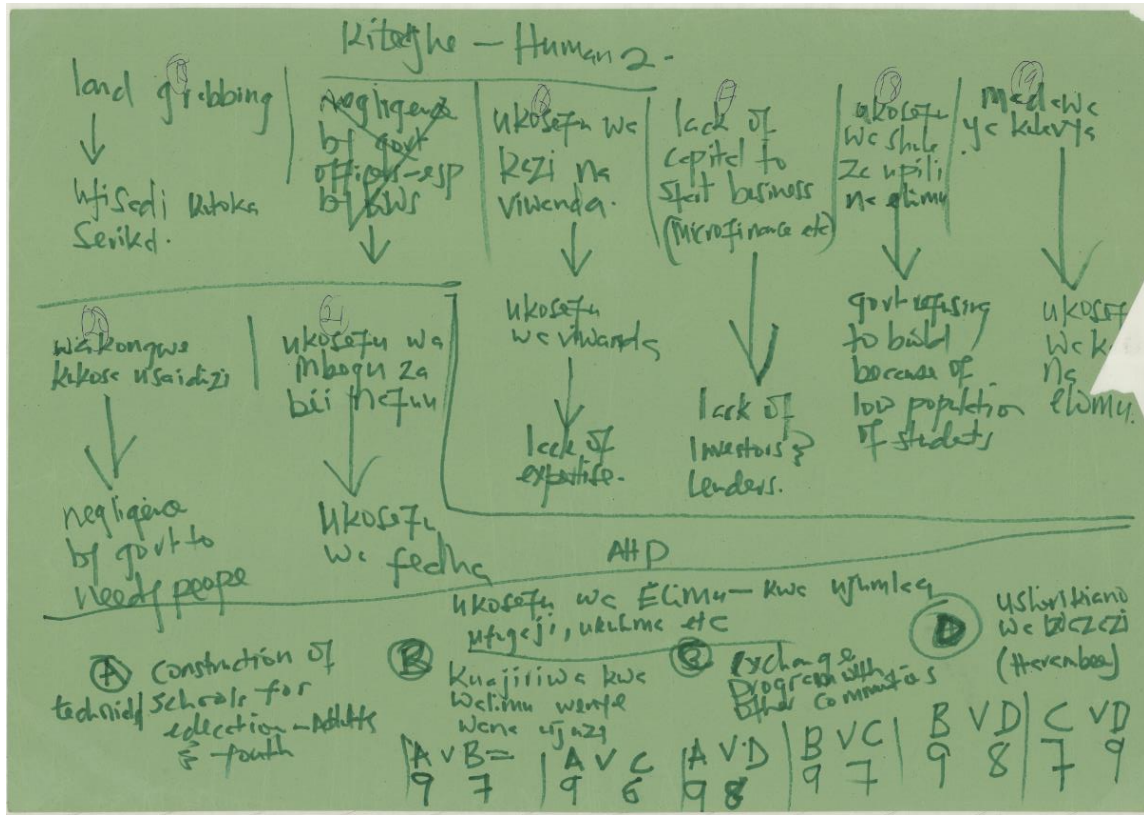 Kiteghe - Human 2.
land grabbing
ufisadi kutoka
Serikal.
negligence
by govt
officials-esp
by KWS
ukosefu wa
kazi na
viwanda.
ukosefu
wa viwanda
lack of
expertise.
17
lack of
capital to
start business
(microfinance etc)
lack of
investors &
lenders.
18
ukosefu
wa shule
za upili
na elimu
govt refusing
to build
because of
low population
of students
19
madawa
ya kulevya
ukosef
wa k
na
elimu.
20
wakongwe
kukosa usaidizi
negligence
by govt to
needy people
21
ukosefu wa
mbegu za
bii nafuu
ukosefu
wa fedha
AHP
ukosefu wa Elimu - kwa ujumlaa
ufugaji, ukulima etc
A Construction of
technical schools for
education - Adults
& youth
B Kuajiriwa kwa
walimu wenye
wana ujuzi
C exchange
program with
other communities
D ushirikiano
wa wazazi
(Harambee)
A V B =
9 7
A V C
9 6
A V.D
9 8
B V C
9 7
B V D
9 8
C V D
7 9